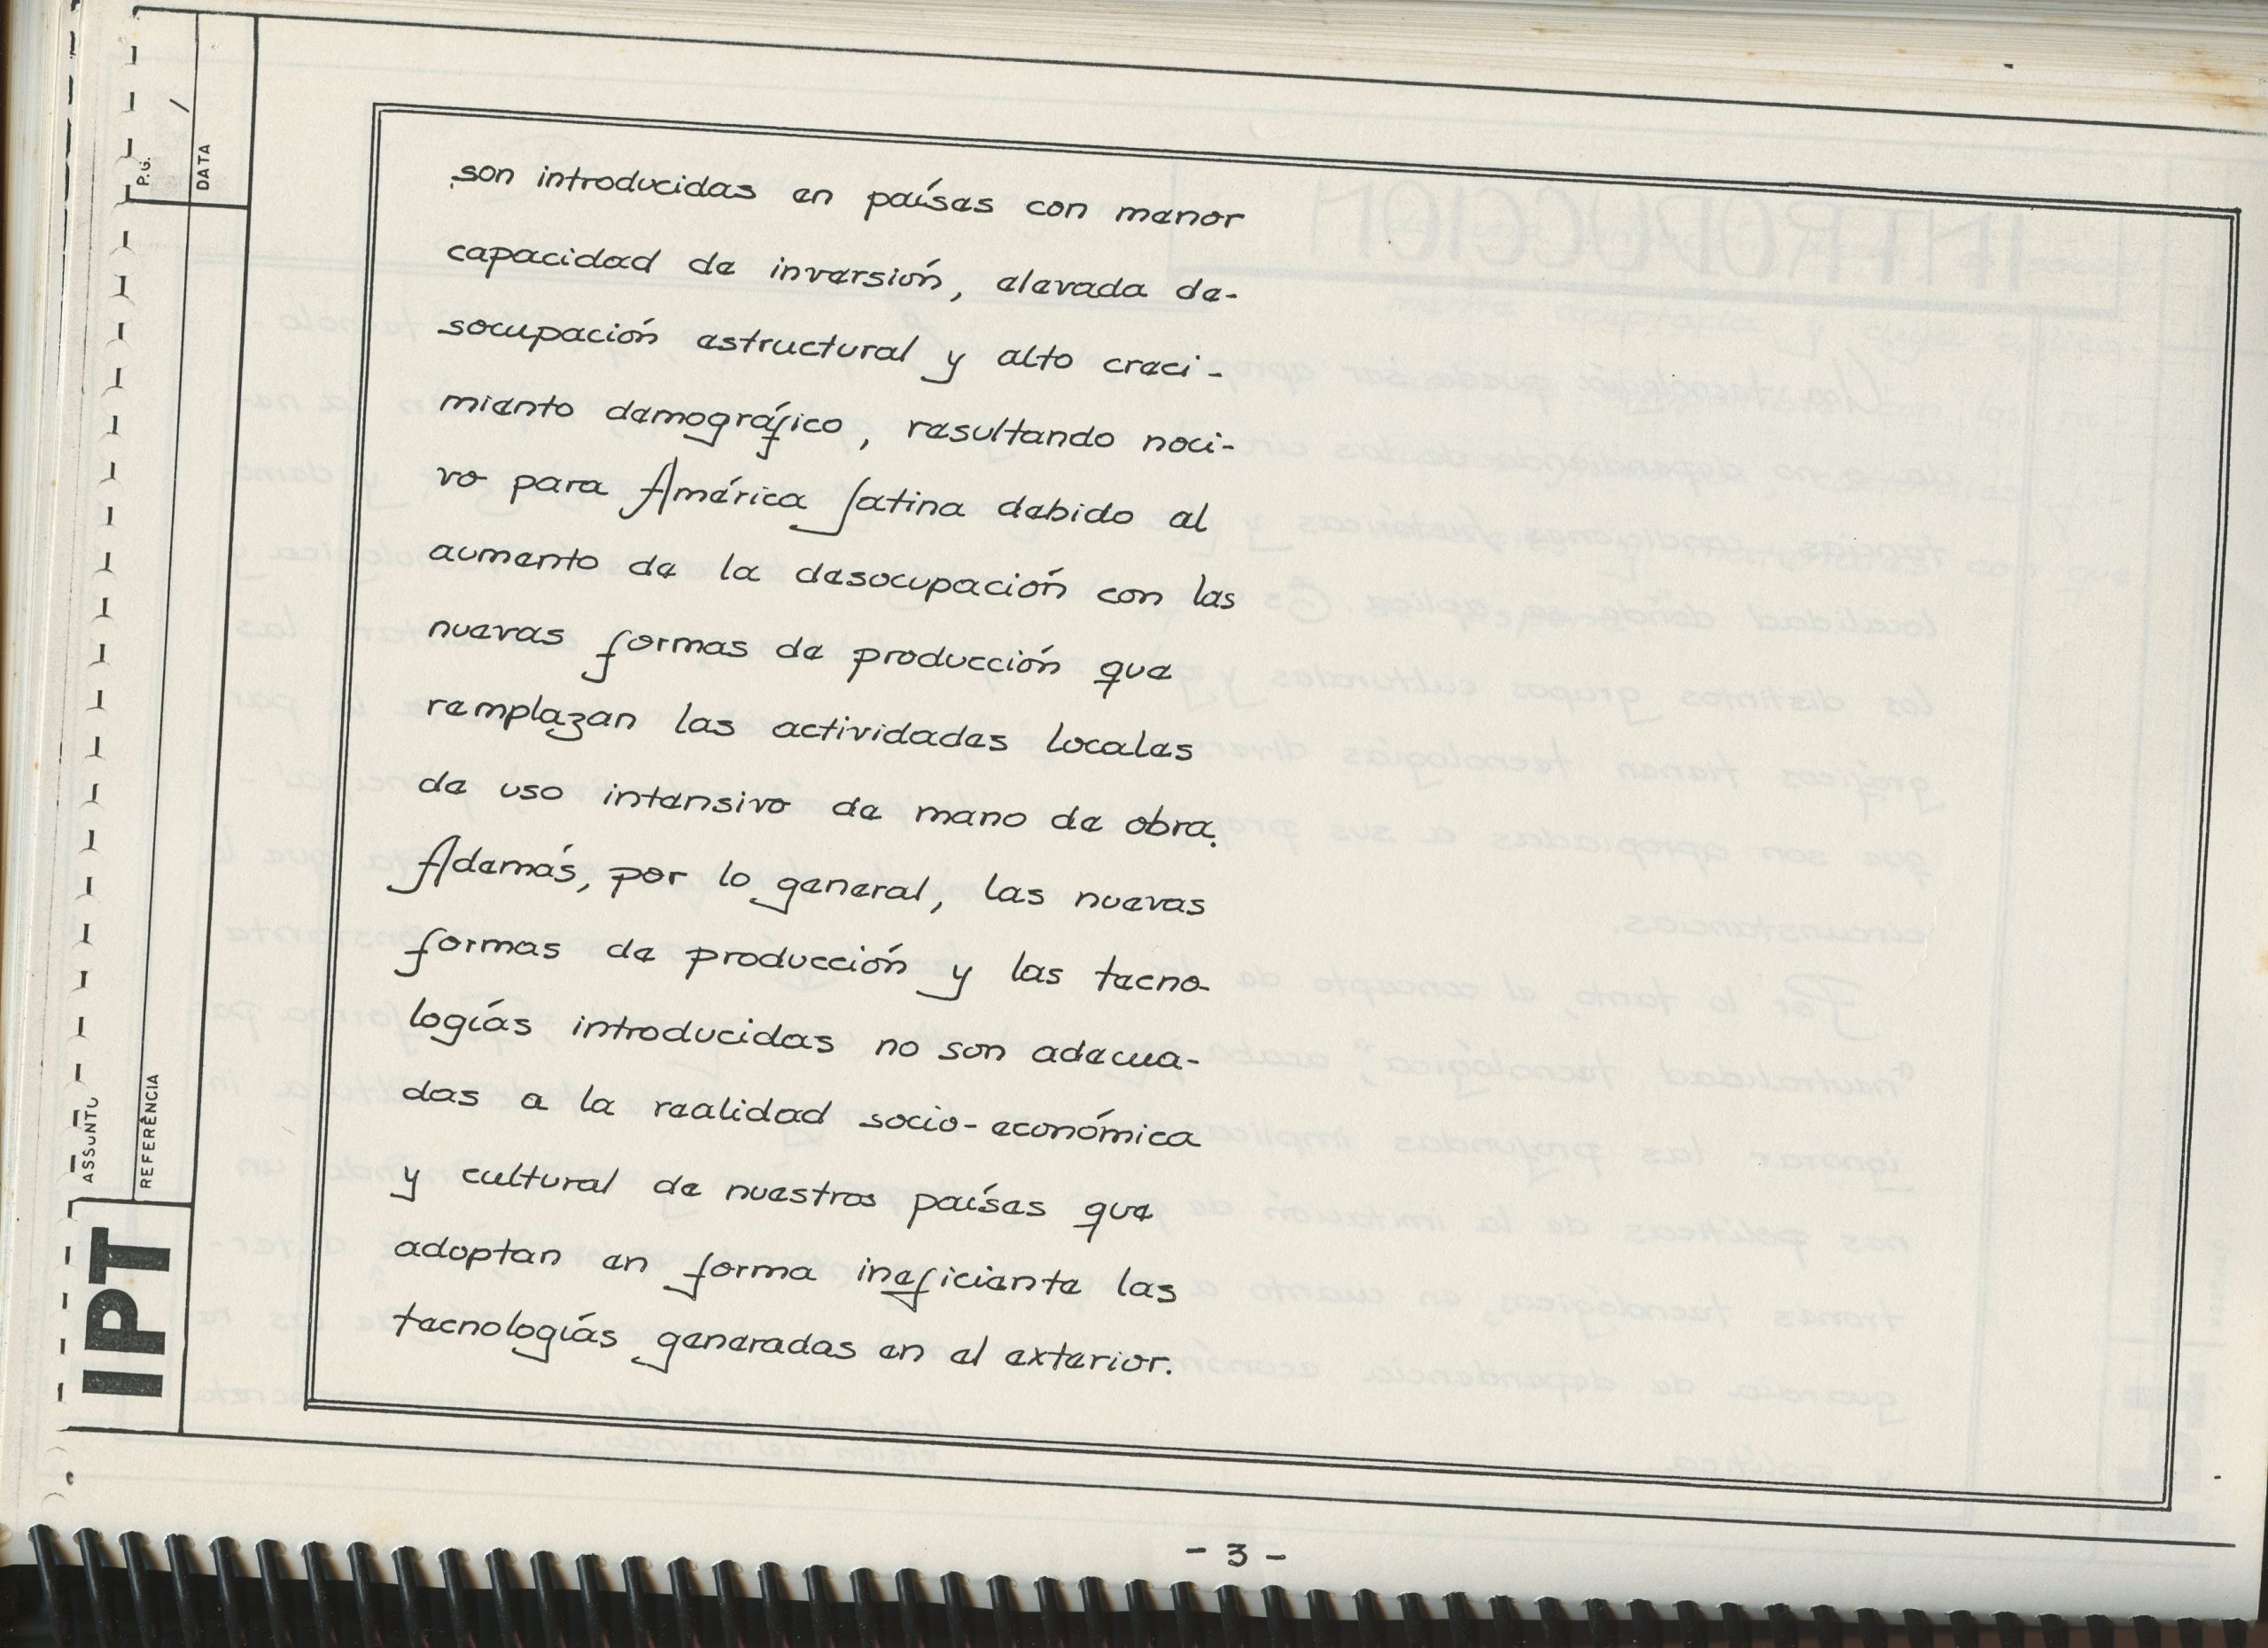 son introducidas en países con menor
capacidad de inversión, elevada de-
socupación estructural y alto creci-
miento demográfico, resultando noci-
vo para América Latina debido al
aumento de la desocupación con las
nuevas formas de producción que
remplazan las actividades locales
de uso intensivo de mano de obra.
Además, por lo general, las nuevas
formas de producción y las tecno-
logías introducidas no son adecua-
das a la realidad socio-económica
y cultural de nuestros países que
adoptan en forma ineficiente las
tecnologías generadas en el exterior.
- 3 -
IPT
ASSUNTO
REFERÊNCIA
DATA
P.G.
/